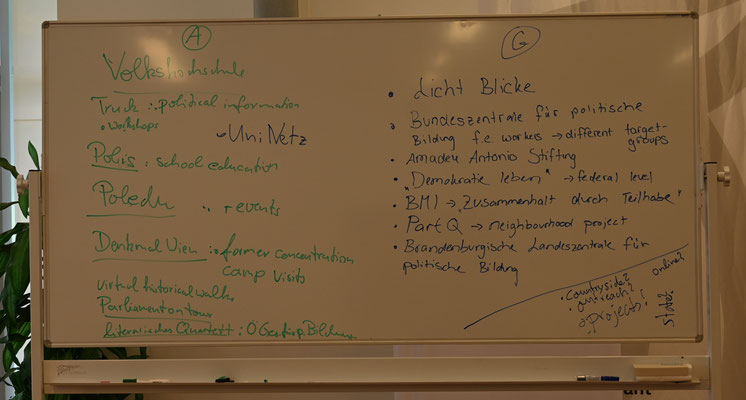 A
Volkshochschule
Truck : political information
• Workshops
• UniNetz
Polis : school education
Poledu
" + events
Denkmal Wien : former concentration
camp visits
virtual historical walks
Parliament on tour
literarisches Quartett : ÖGesf. pol. Bildung
G
• Licht Blicke
• Bundeszentrale für politische
Bildung f.e. workers → different target-
groups
• Amadeu Antonio Stiftung
• "Demokratie leben" → federal level
• BMI → "Zusammenhalt durch Teilhabe"
• Part Q → neighbourhood project
• Brandenburgische Landeszentrale für
politische Bildung
• Countryside?
• outreach?
• projects!
online?